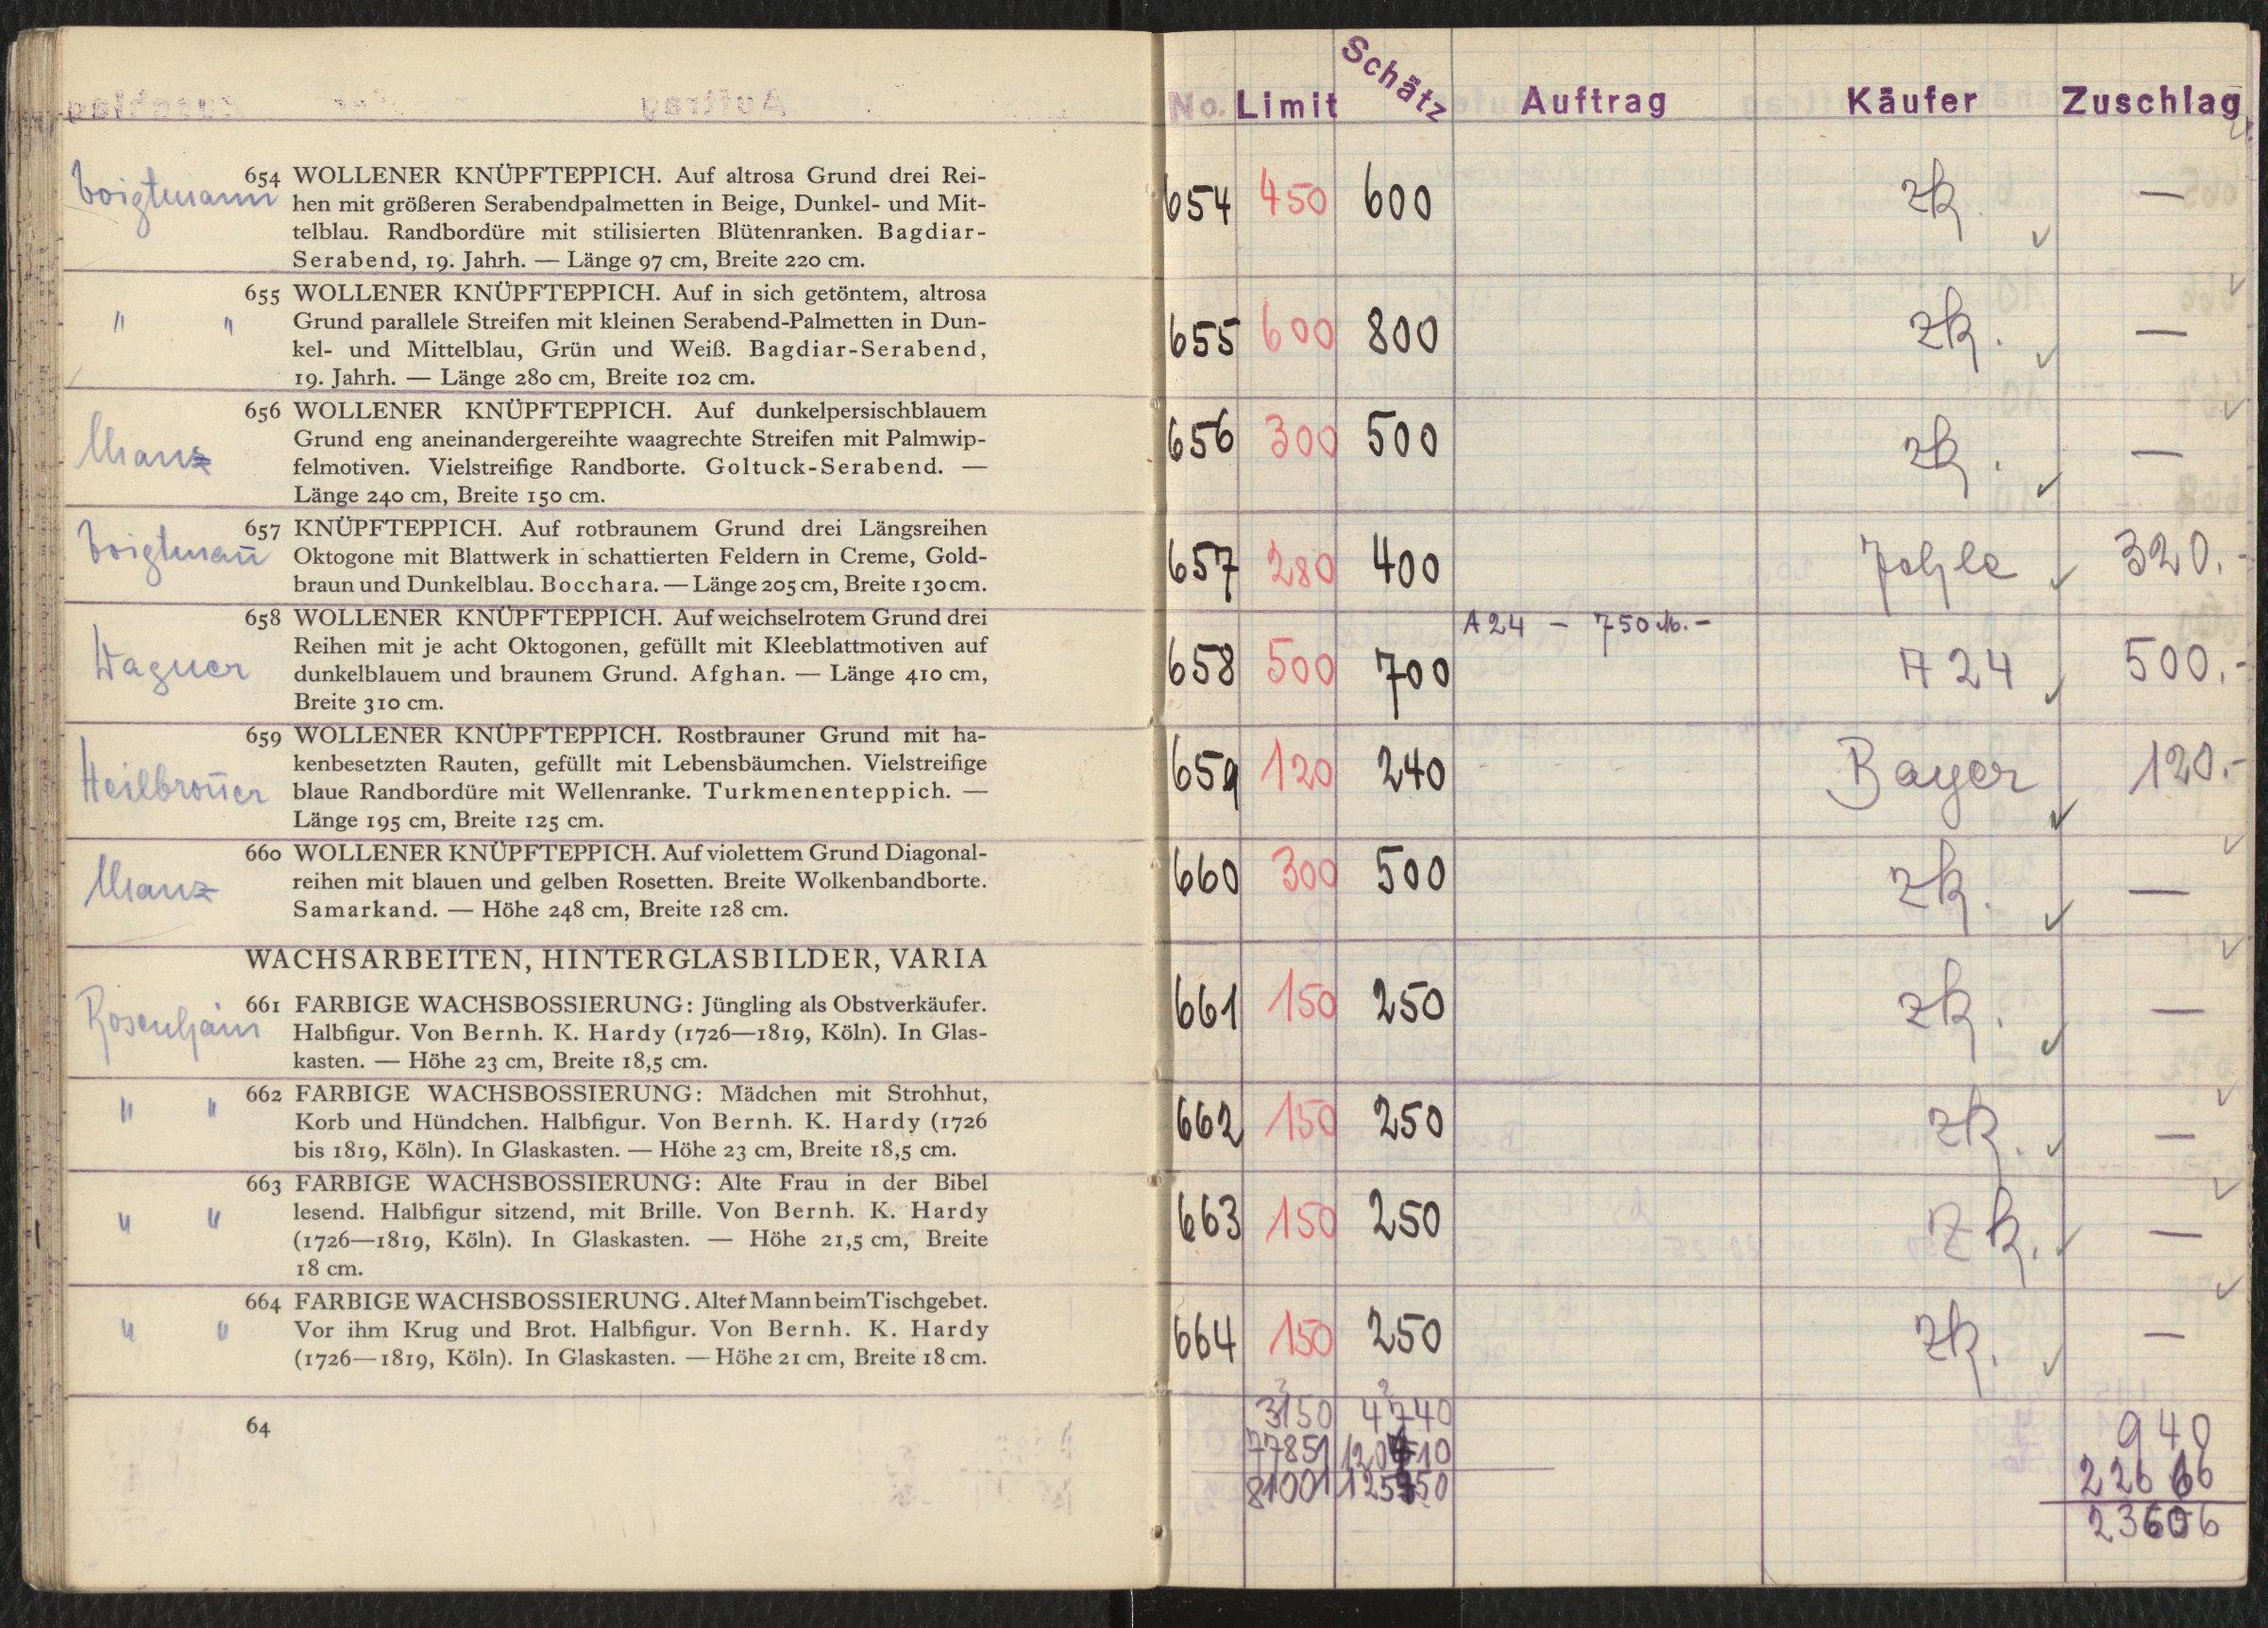 Voigtmann
654 WOLLENER KNÜPFTEPPICH. Auf altrosa Grund drei Rei-
hen mit größeren Serabendpalmetten in Beige, Dunkel- und Mit-
telblau. Randbordüre mit stilisierten Blütenranken. Bagdiar-
Serabend, 19. Jahrh. — Länge 97 cm, Breite 220 cm.
" "
655 WOLLENER KNÜPFTEPPICH. Auf in sich getöntem, altrosa
Grund parallele Streifen mit kleinen Serabend-Palmetten in Dun-
kel- und Mittelblau, Grün und Weiß. Bagdiar-Serabend,
19. Jahrh. — Länge 280 cm, Breite 102 cm.
Manz
656 WOLLENER KNÜPFTEPPICH. Auf dunkelpersischblauem
Grund eng aneinandergereihte waagrechte Streifen mit Palmwip-
felmotiven. Vielstreifige Randborte. Goltuck-Serabend. —
Länge 240 cm, Breite 150 cm.
Voigtmañ
657 KNÜPFTEPPICH. Auf rotbraunem Grund drei Längsreihen
Oktogone mit Blattwerk in schattierten Feldern in Creme, Gold-
braun und Dunkelblau. Bocchara. — Länge 205 cm, Breite 130 cm.
Wagner
658 WOLLENER KNÜPFTEPPICH. Auf weichselrotem Grund drei
Reihen mit je acht Oktogonen, gefüllt mit Kleeblattmotiven auf
dunkelblauem und braunem Grund. Afghan. — Länge 410 cm,
Breite 310 cm.
Heilbroñer
659 WOLLENER KNÜPFTEPPICH. Rostbrauner Grund mit ha-
kenbesetzten Rauten, gefüllt mit Lebensbäumchen. Vielstreifige
blaue Randbordüre mit Wellenranke. Turkmenenteppich. —
Länge 195 cm, Breite 125 cm.
Manz
660 WOLLENER KNÜPFTEPPICH. Auf violettem Grund Diagonal-
reihen mit blauen und gelben Rosetten. Breite Wolkenbandborte.
Samarkand. — Höhe 248 cm, Breite 128 cm.
WACHSARBEITEN, HINTERGLASBILDER, VARIA
Rosenhain
661 FARBIGE WACHSBOSSIERUNG: Jüngling als Obstverkäufer.
Halbfigur. Von Bernh. K. Hardy (1726—1819, Köln). In Glas-
kasten. — Höhe 23 cm, Breite 18,5 cm.
" "
662 FARBIGE WACHSBOSSIERUNG: Mädchen mit Strohhut,
Korb und Hündchen. Halbfigur. Von Bernh. K. Hardy (1726
bis 1819, Köln). In Glaskasten. — Höhe 23 cm, Breite 18,5 cm.
" "
663 FARBIGE WACHSBOSSIERUNG: Alte Frau in der Bibel
lesend. Halbfigur sitzend, mit Brille. Von Bernh. K. Hardy
(1726—1819, Köln). In Glaskasten. — Höhe 21,5 cm, Breite
18 cm.
" "
664 FARBIGE WACHSBOSSIERUNG. Alter Mann beim Tischgebet.
Vor ihm Krug und Brot. Halbfigur. Von Bernh. K. Hardy
(1726—1819, Köln). In Glaskasten. — Höhe 21 cm, Breite 18 cm.
64
No. Limit Schätz Auftrag Käufer Zuschlag
654 450 600 zk. ✓ —
655 600 800 zk. ✓ —
656 300 500 zk. ✓ —
657 280 400 ✓ 320.-
A 24 — 750 M. —
658 500 700 A 24 ✓ 500.-
659 120 240 Bayer ✓ 120.-
660 300 500 zk. ✓ —
661 150 250 zk. ✓ —
662 150 250 zk. ✓ —
663 150 250 zk. ✓ —
664 150 250 zk. ✓ —
3150 4740 940
77851 22666
81001 23606